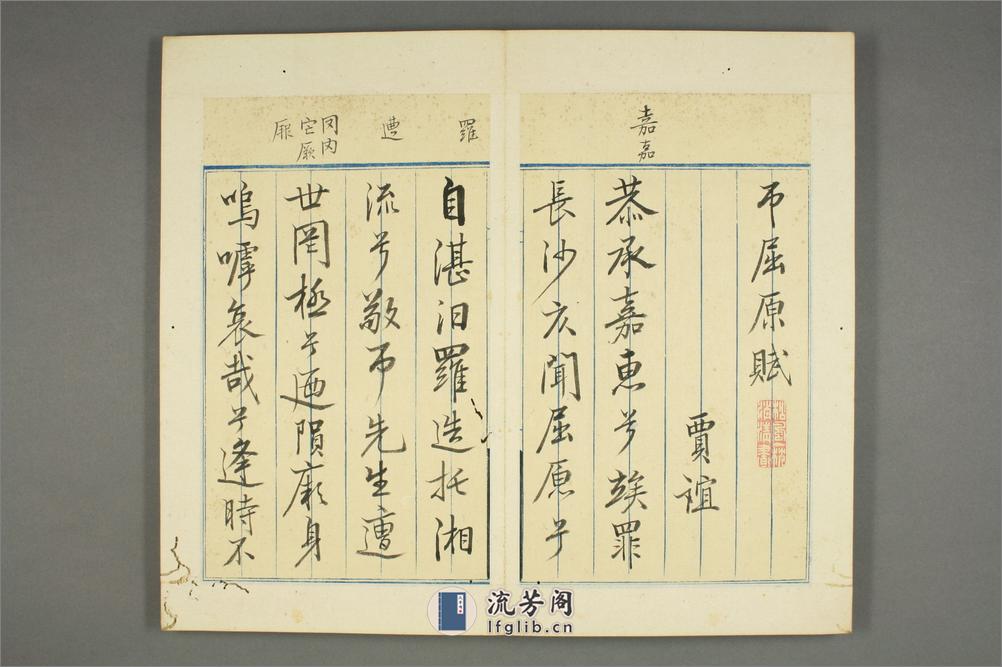 弔屈原賦
賈誼
恭承嘉惠兮竢罪
長沙仄聞屈原兮
自湛汨羅造托湘
流兮敬弔先生遭
世罔極兮迺隕厥身
嗚嘑哀哉兮逢時不
嘉嘉
羅
遭
罔內
它厥
厞
流芳阁
lfglib.cn